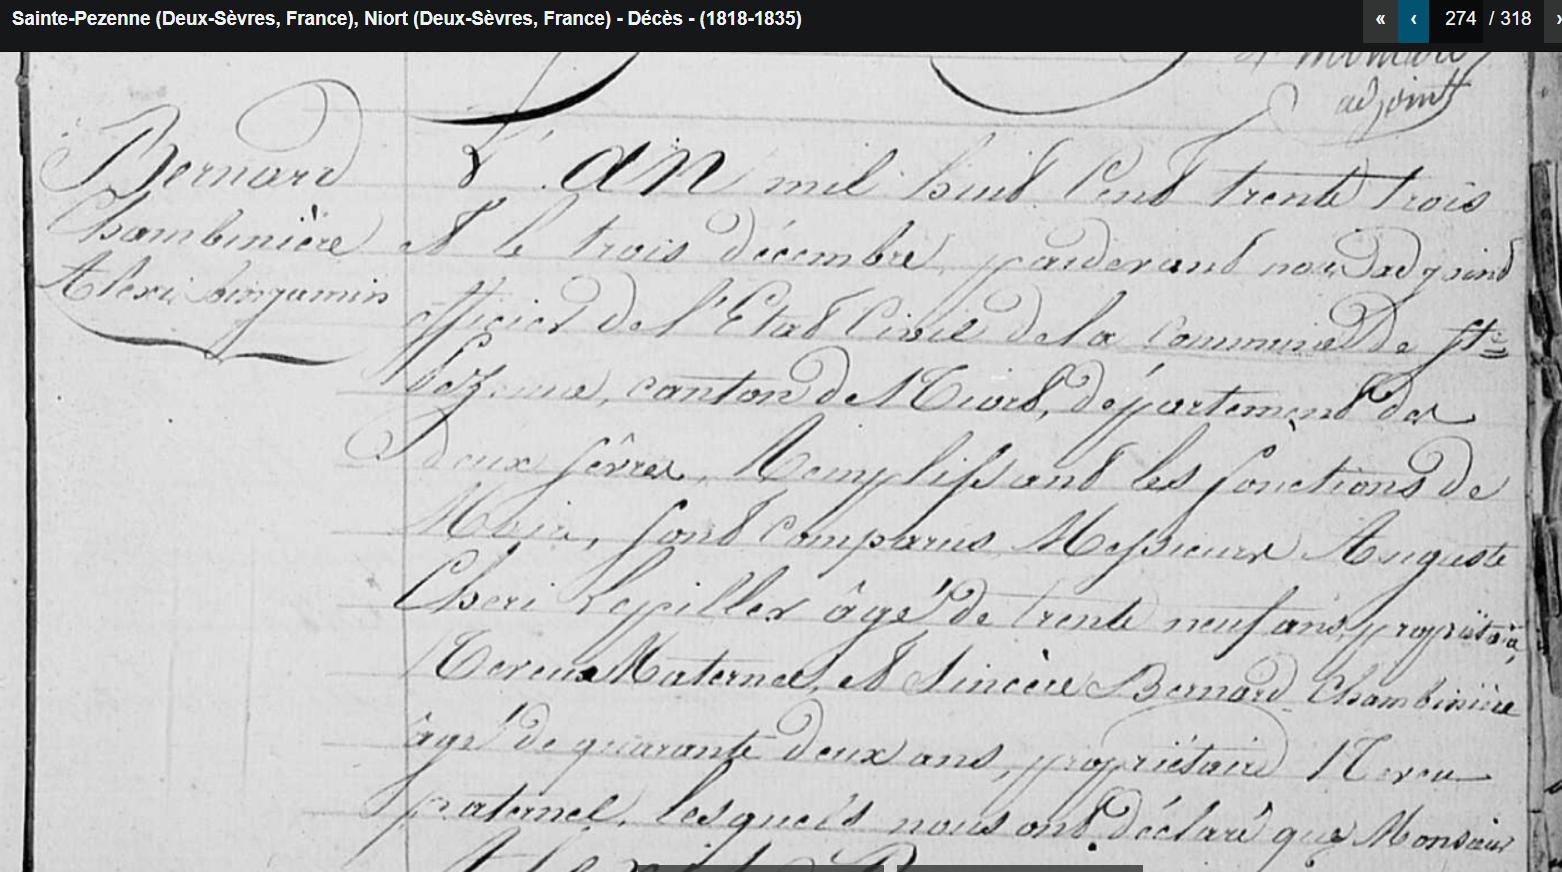 Sainte-Pezenne (Deux-Sèvres, France), Niort (Deux-Sèvres, France) - Décès - (1818-1835)
« ‹ 274 / 318 ›
adjoint
Bernard
Chambinière
Alexi binjamin
L'an mil huit Cent trente trois
et le trois décembre, pardevant nous adjoint
officier de l'Etat Civil de la Commune de Ste
Pezenne, canton de Niort, département des
deux sêvres, Remplissant les fonctions de
Maire, sont Comparus Messieurs Auguste
Cheri Lepiller âgé de trente neuf ans, propriétaire,
Neveux Maternel, et Sincère Bernard Chambinière
âgé de quarante deux ans, propriétaire Neveu
paternel, lesquels nous ont déclaré que Monsieur